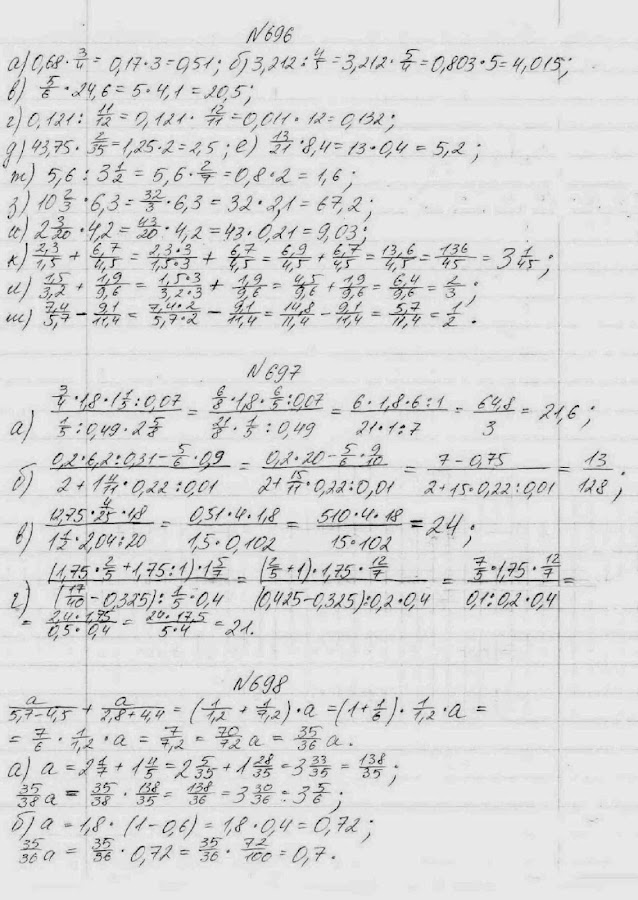 №696
а) 0,68 · 3/4 = 0,17·3 = 0,51; б) 3,212 : 4/5 = 3,212 · 5/4 = 0,803·5 = 4,015;
в) 5/6 · 24,6 = 5·4,1 = 20,5;
г) 0,121 : 11/12 = 0,121 · 12/11 = 0,011·12 = 0,132;
д) 43,75 · 2/35 = 1,25·2 = 2,5; е) 13/21 · 8,4 = 13·0,4 = 5,2;
ж) 5,6 : 3 1/2 = 5,6 · 2/7 = 0,8·2 = 1,6;
з) 10 2/3 · 6,3 = 32/3 · 6,3 = 32·2,1 = 67,2;
и) 2 3/20 · 4,2 = 43/20 · 4,2 = 43·0,21 = 9,03;
к) 2,3/1,5 + 6,7/4,5 = 2,3·3/1,5·3 + 6,7/4,5 = 6,9/4,5 + 6,7/4,5 = 13,6/4,5 = 136/45 = 3 1/45;
л) 1,5/3,2 + 1,9/9,6 = 1,5·3/3,2·3 + 1,9/9,6 = 4,5/9,6 + 1,9/9,6 = 6,4/9,6 = 2/3;
м) 7,4/5,7 - 9,1/11,4 = 7,4·2/5,7·2 - 9,1/11,4 = 14,8/11,4 - 9,1/11,4 = 5,7/11,4 = 1/2.
№697
а) (3/4 · 1,8 · 1 1/5 : 0,07)/(1/5 : 0,49 · 2 5/8) = (6/8 · 1,8 · 6/5 : 0,07)/(21/8 · 1/5 : 0,49) = (6·1,8·6:1)/(21·1:7) = 64,8/3 = 21,6;
б) (0,2·6,2:0,31 - 5/6 · 0,9)/(2 + 1 4/11 · 0,22:0,01) = (0,2·20 - 5/6 · 9/10)/(2 + 15/11 · 0,22:0,01) = (7 - 0,75)/(2 + 15·0,22:0,01) = 13/128;
в) (12,75 · 4/25 · 1,8)/(1 1/2 · 2,04:20) = (0,51·4·1,8)/(1,5·0,102) = (510·4·18)/(15·102) = 24;
г) ((1,75 · 2/5 + 1,75:1) · 1 5/7)/((17/40 - 0,325) : 1/5 · 0,4) = ((2/5 + 1) · 1,75 · 12/7)/((0,425 - 0,325):0,2·0,4) = (7/5 · 1,75 · 12/7)/(0,1:0,2·0,4) =
= (2,4·1,75)/(0,5·0,4) = (24·17,5)/(5·4) = 21.
№698
a/(5,7-4,5) + a/(2,8+4,4) = (1/1,2 + 1/7,2) · a = (1 + 1/6) · 1/1,2 · a =
= 7/6 · 1/1,2 · a = 7/7,2 = 70/72 a = 35/36 a.
а) a = 2 1/7 + 1 4/5 = 2 5/35 + 1 28/35 = 3 33/35 = 138/35;
35/38 a = 35/38 · 138/35 = 138/36 = 3 30/36 = 3 5/6;
б) a = 1,8 · (1 - 0,6) = 1,8 · 0,4 = 0,72;
35/36 a = 35/36 · 0,72 = 35/36 · 72/100 = 0,7.